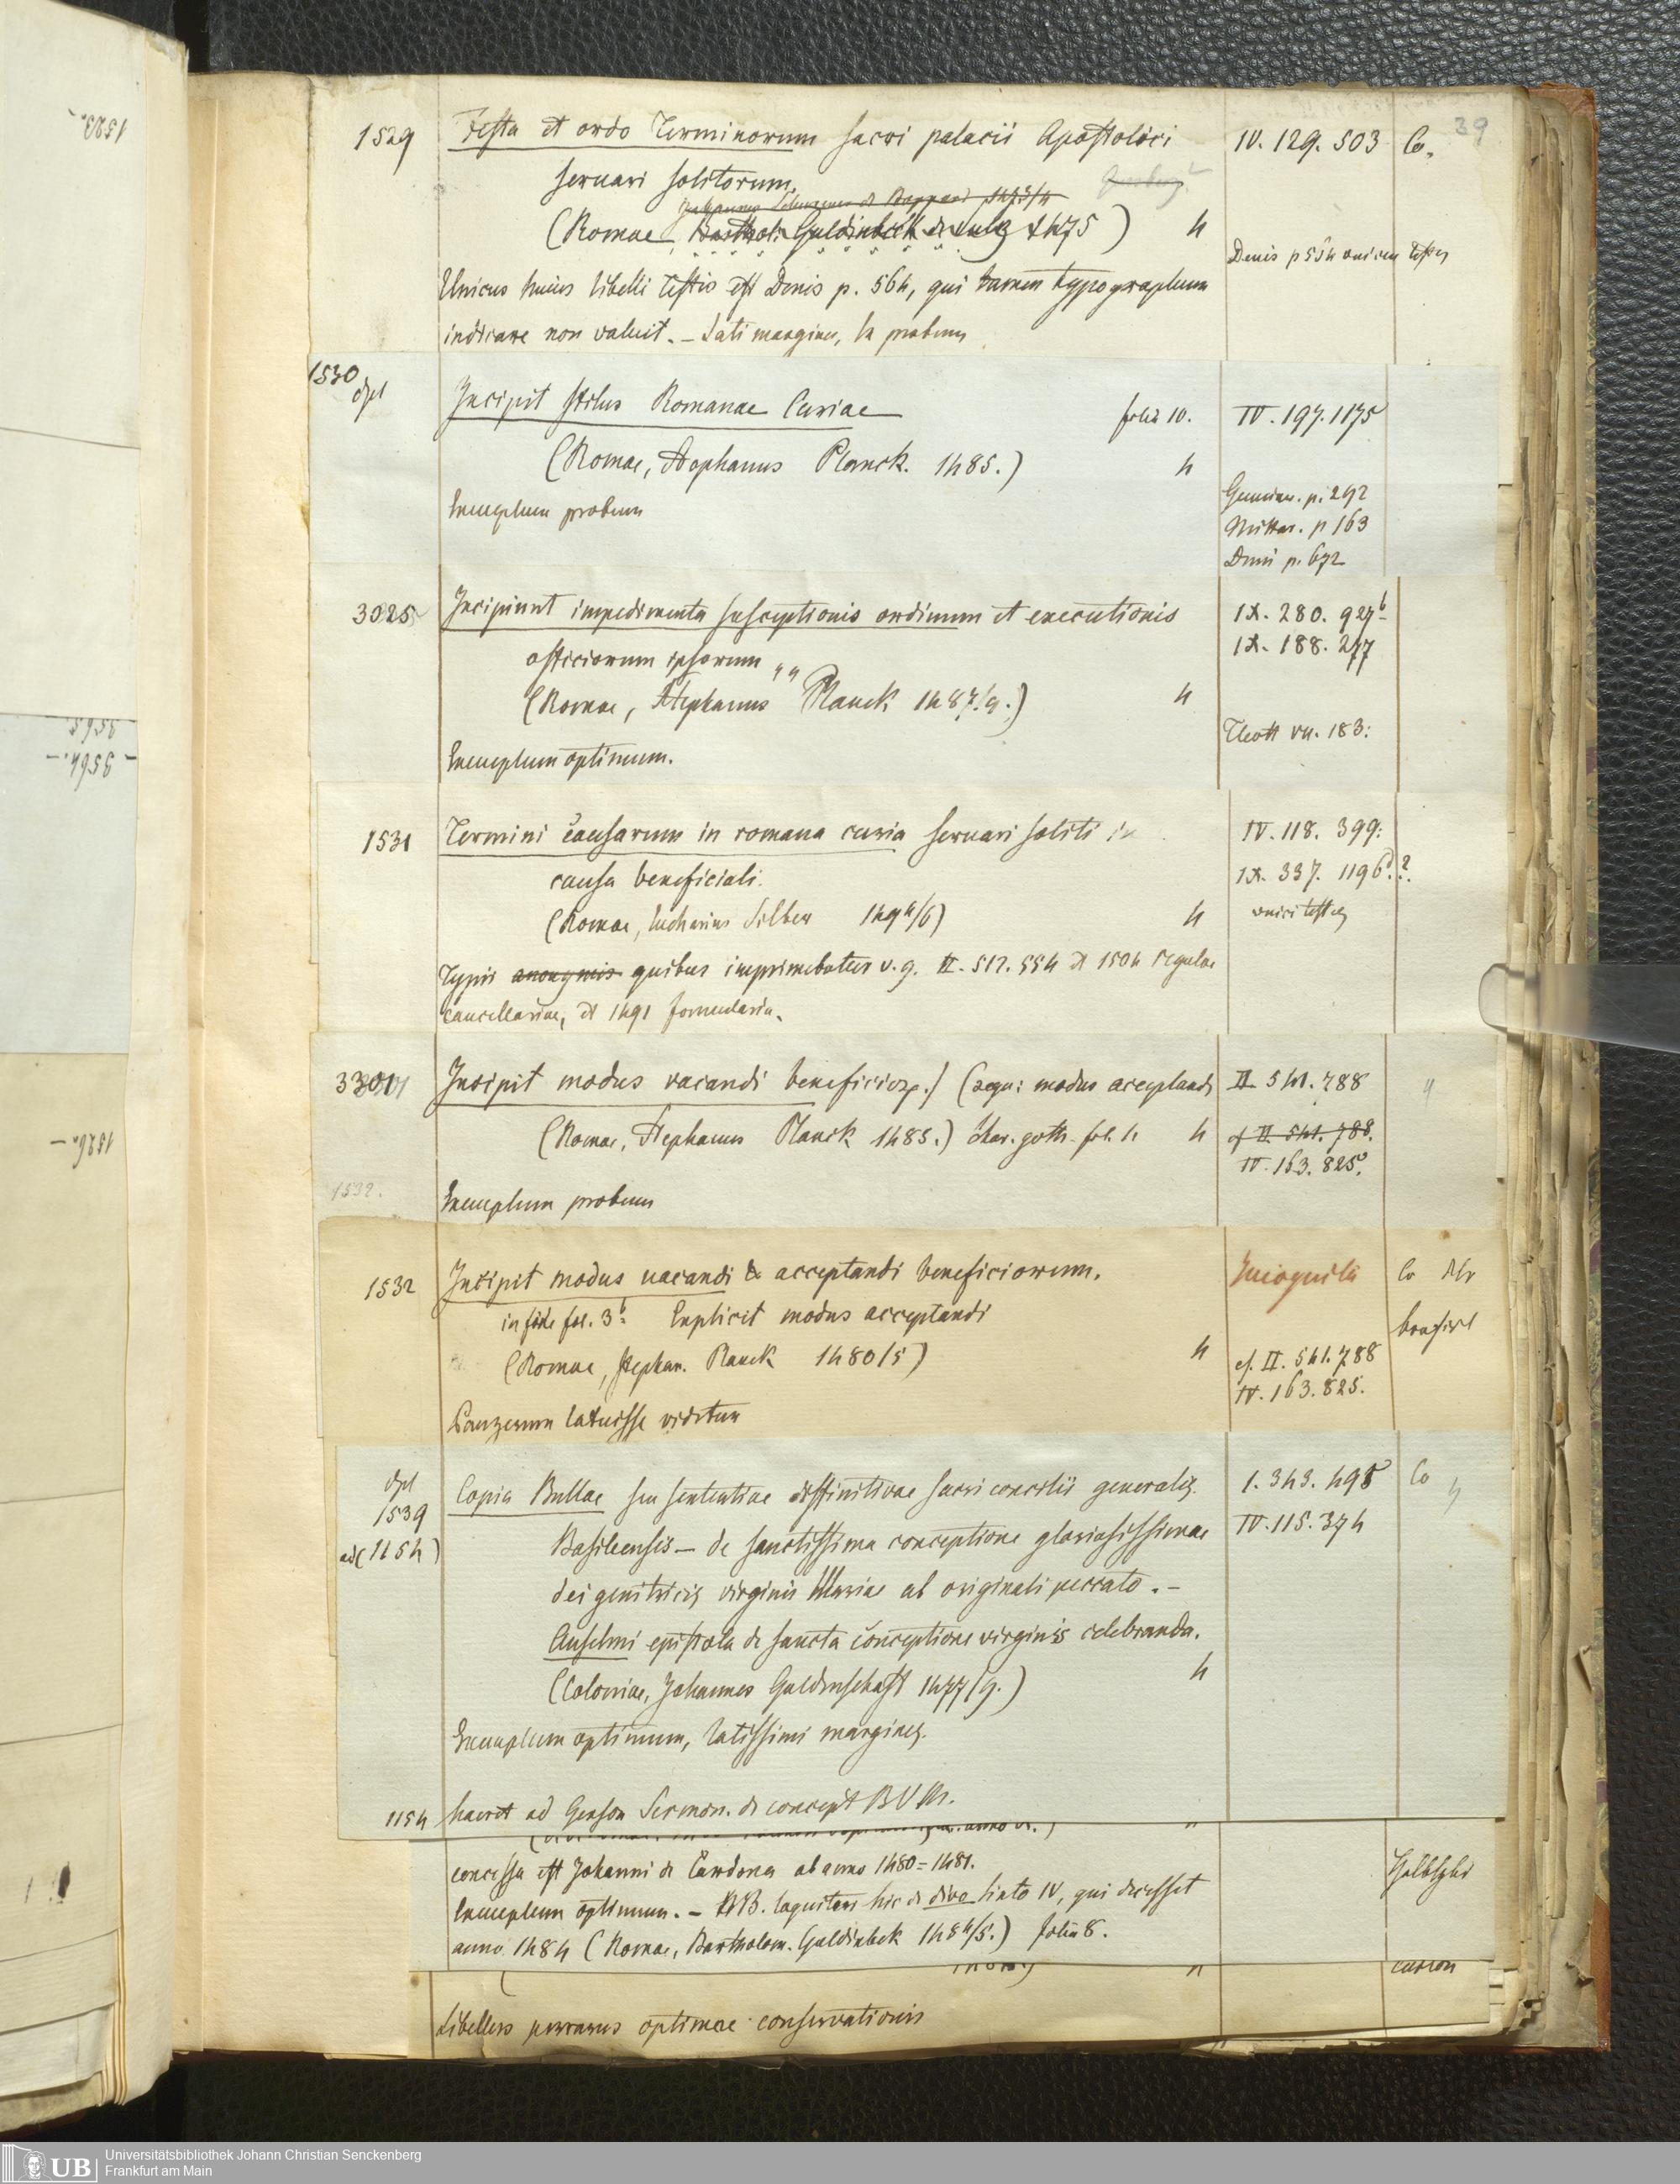 39
1529 Festa et ordo Terminorum sacri palacii Apostolici IV. 129. 503 Co.
seruari solitorum.
(Romae, Barthol. Guldinbeck de Sulz 1475) 4
Unicus huius libelli testis est Denis p. 564, qui tamen typographum
indicare non valuit. – Lati margines, Ex probum
1530 dpl Incipit stilus Romanae Curiae folia 10. IV. 197. 1175
(Romae, Stephanus Planck. 1485.) 4
Exemplum probum
p. 292
p 163
Denis p. 672
3025 Incipiunt impedimenta susceptionis ordinum et executionis IX. 280. 927b
officiorum ipsorum IX. 188. 277
(Romae, Stephanus Planck 1487/9.) 4
Exemplum optimum.
183.
1531 Termini causarum in romana curia seruari soliti in IV. 118. 399.
causa beneficiali. IX. 337. 1196d.?
(Romae, Eucharius Silber 1494/6) 4 unici testes
Typis anonymis quibus imprimebatur v. g. II. 512. 554 et 1504 regulae
cancellariae, et 1491 formularia.
3301 Incipit modus vacandi beneficiorp.) (sequ: modus acceptandi II. 541. 788
(Romae, Stephanus Planck 1485.) char. goth. fol. 4 cf II. 541. 788.
IV. 163. 825.
1532. Exemplum probum
1532 Incipit modus uacandi & acceptandi beneficiorum. Incognita
in fine fol. 3b: Explicit modus acceptandi
(Romae, Stephan. Planck 1480/5) 4 cf. II. 541. 788
IV. 163. 825.
Panzerum latuisse videtur
dpl
1539 Copia Bullae seu sententiae diffinitivae sacri concilii generalis I. 343. 498 Co
ad (1154) Basileensis – de sanctissima conceptione gloriosissimae IV. 115. 374
dei genitricis virginis Mariae ab originali peccato. –
Anselmi epistola de sancta conceptione virginis celebranda.
(Coloniae, Johannes Guldenschaff 1477/9.) 4
Exemplum optimum, latissimi margines.
1154 haeret ad Gerson Sermon. de concept B V M.
concessa est Johanni de Cardona ab anno 1480–1481.
Exemplum optimum. – NB. loquitur hic de divo Sixto IV, qui decessit
anno 1484 (Romae, Bartholom. Guldinbek 1484/5.) folia 8.
Libellus perrarus optimae conservationis
1523.
3565.
3564.–
1526.–
UB
Universitätsbibliothek Johann Christian Senckenberg
Frankfurt am Main